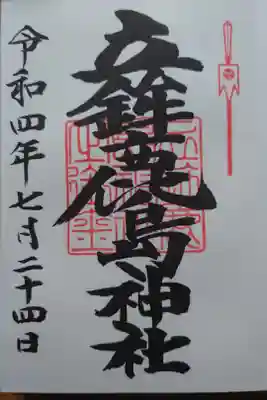 立鉾鹿島神社
令和四年七月二十四日